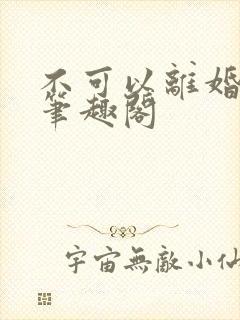 不可以離婚
筆趣閣
宇宙無敵小仙